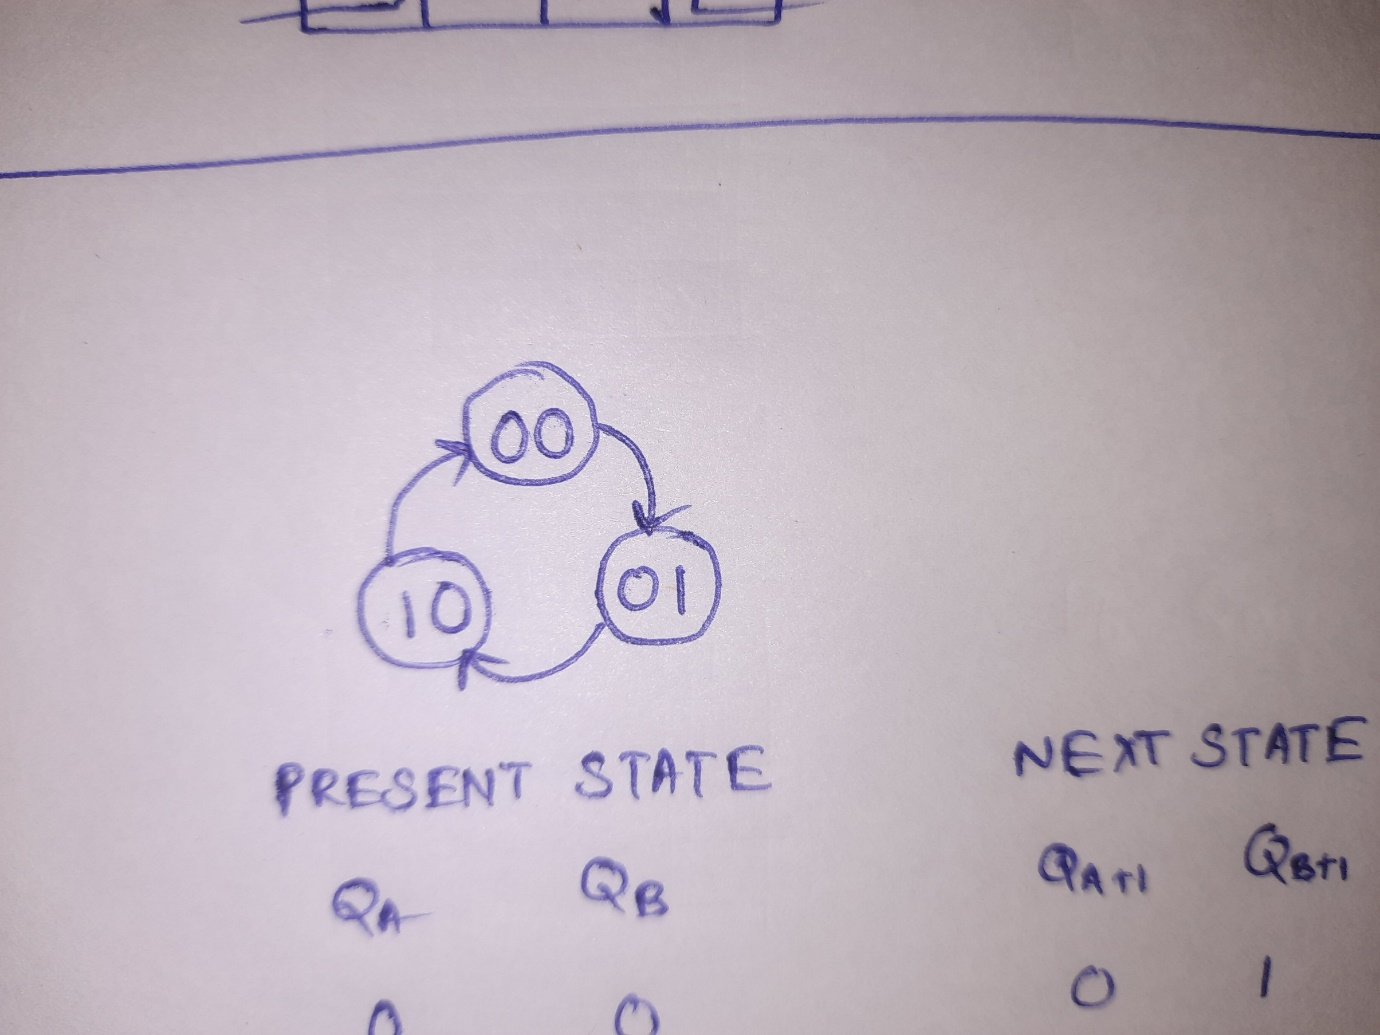 00
10 01
PRESENT STATE NEXT STATE
QA QB QA+1 QB+1
0 0 0 1